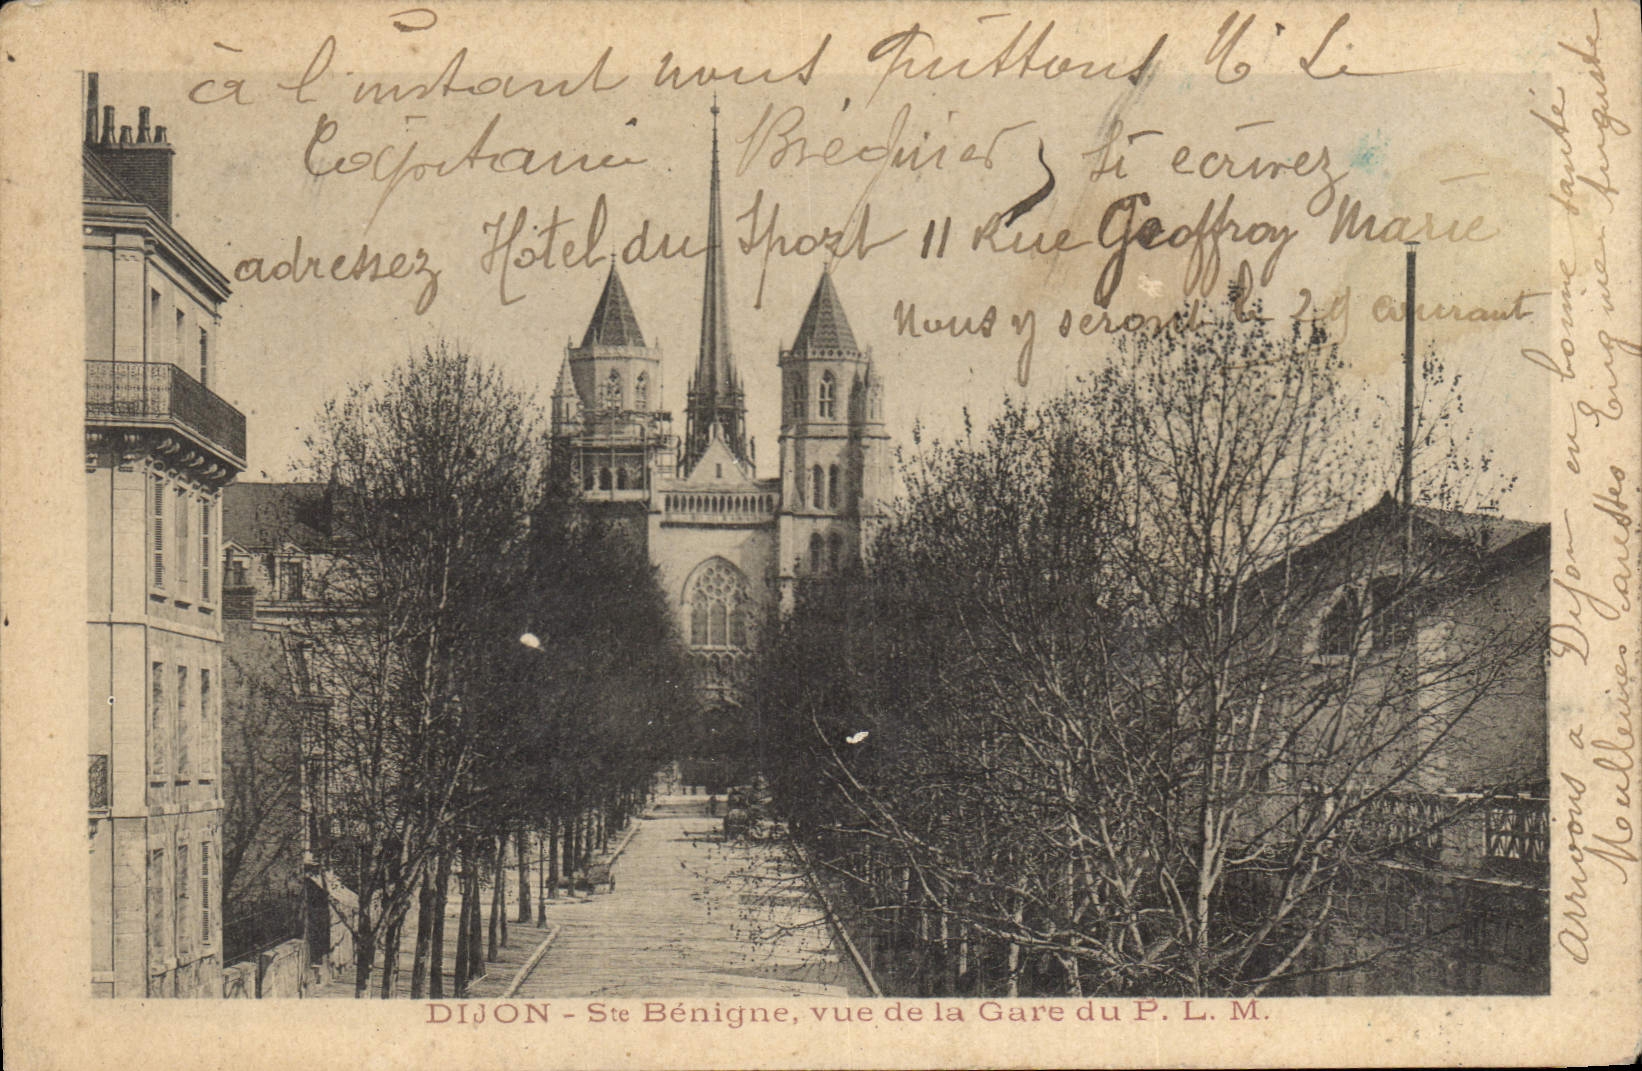 à l'instant nous quittons M Le
Capitaine Bréquier, Si ecrivez
adressez Hôtel du Sport 11 Rue Geoffroy Marie
Nous y serons le 29 courant
Arrivons a Dijon en bonne santé
Meilleures Caresses Eugénie Auguste
DIJON - Ste Bénigne, vue de la Gare du P. L. M.